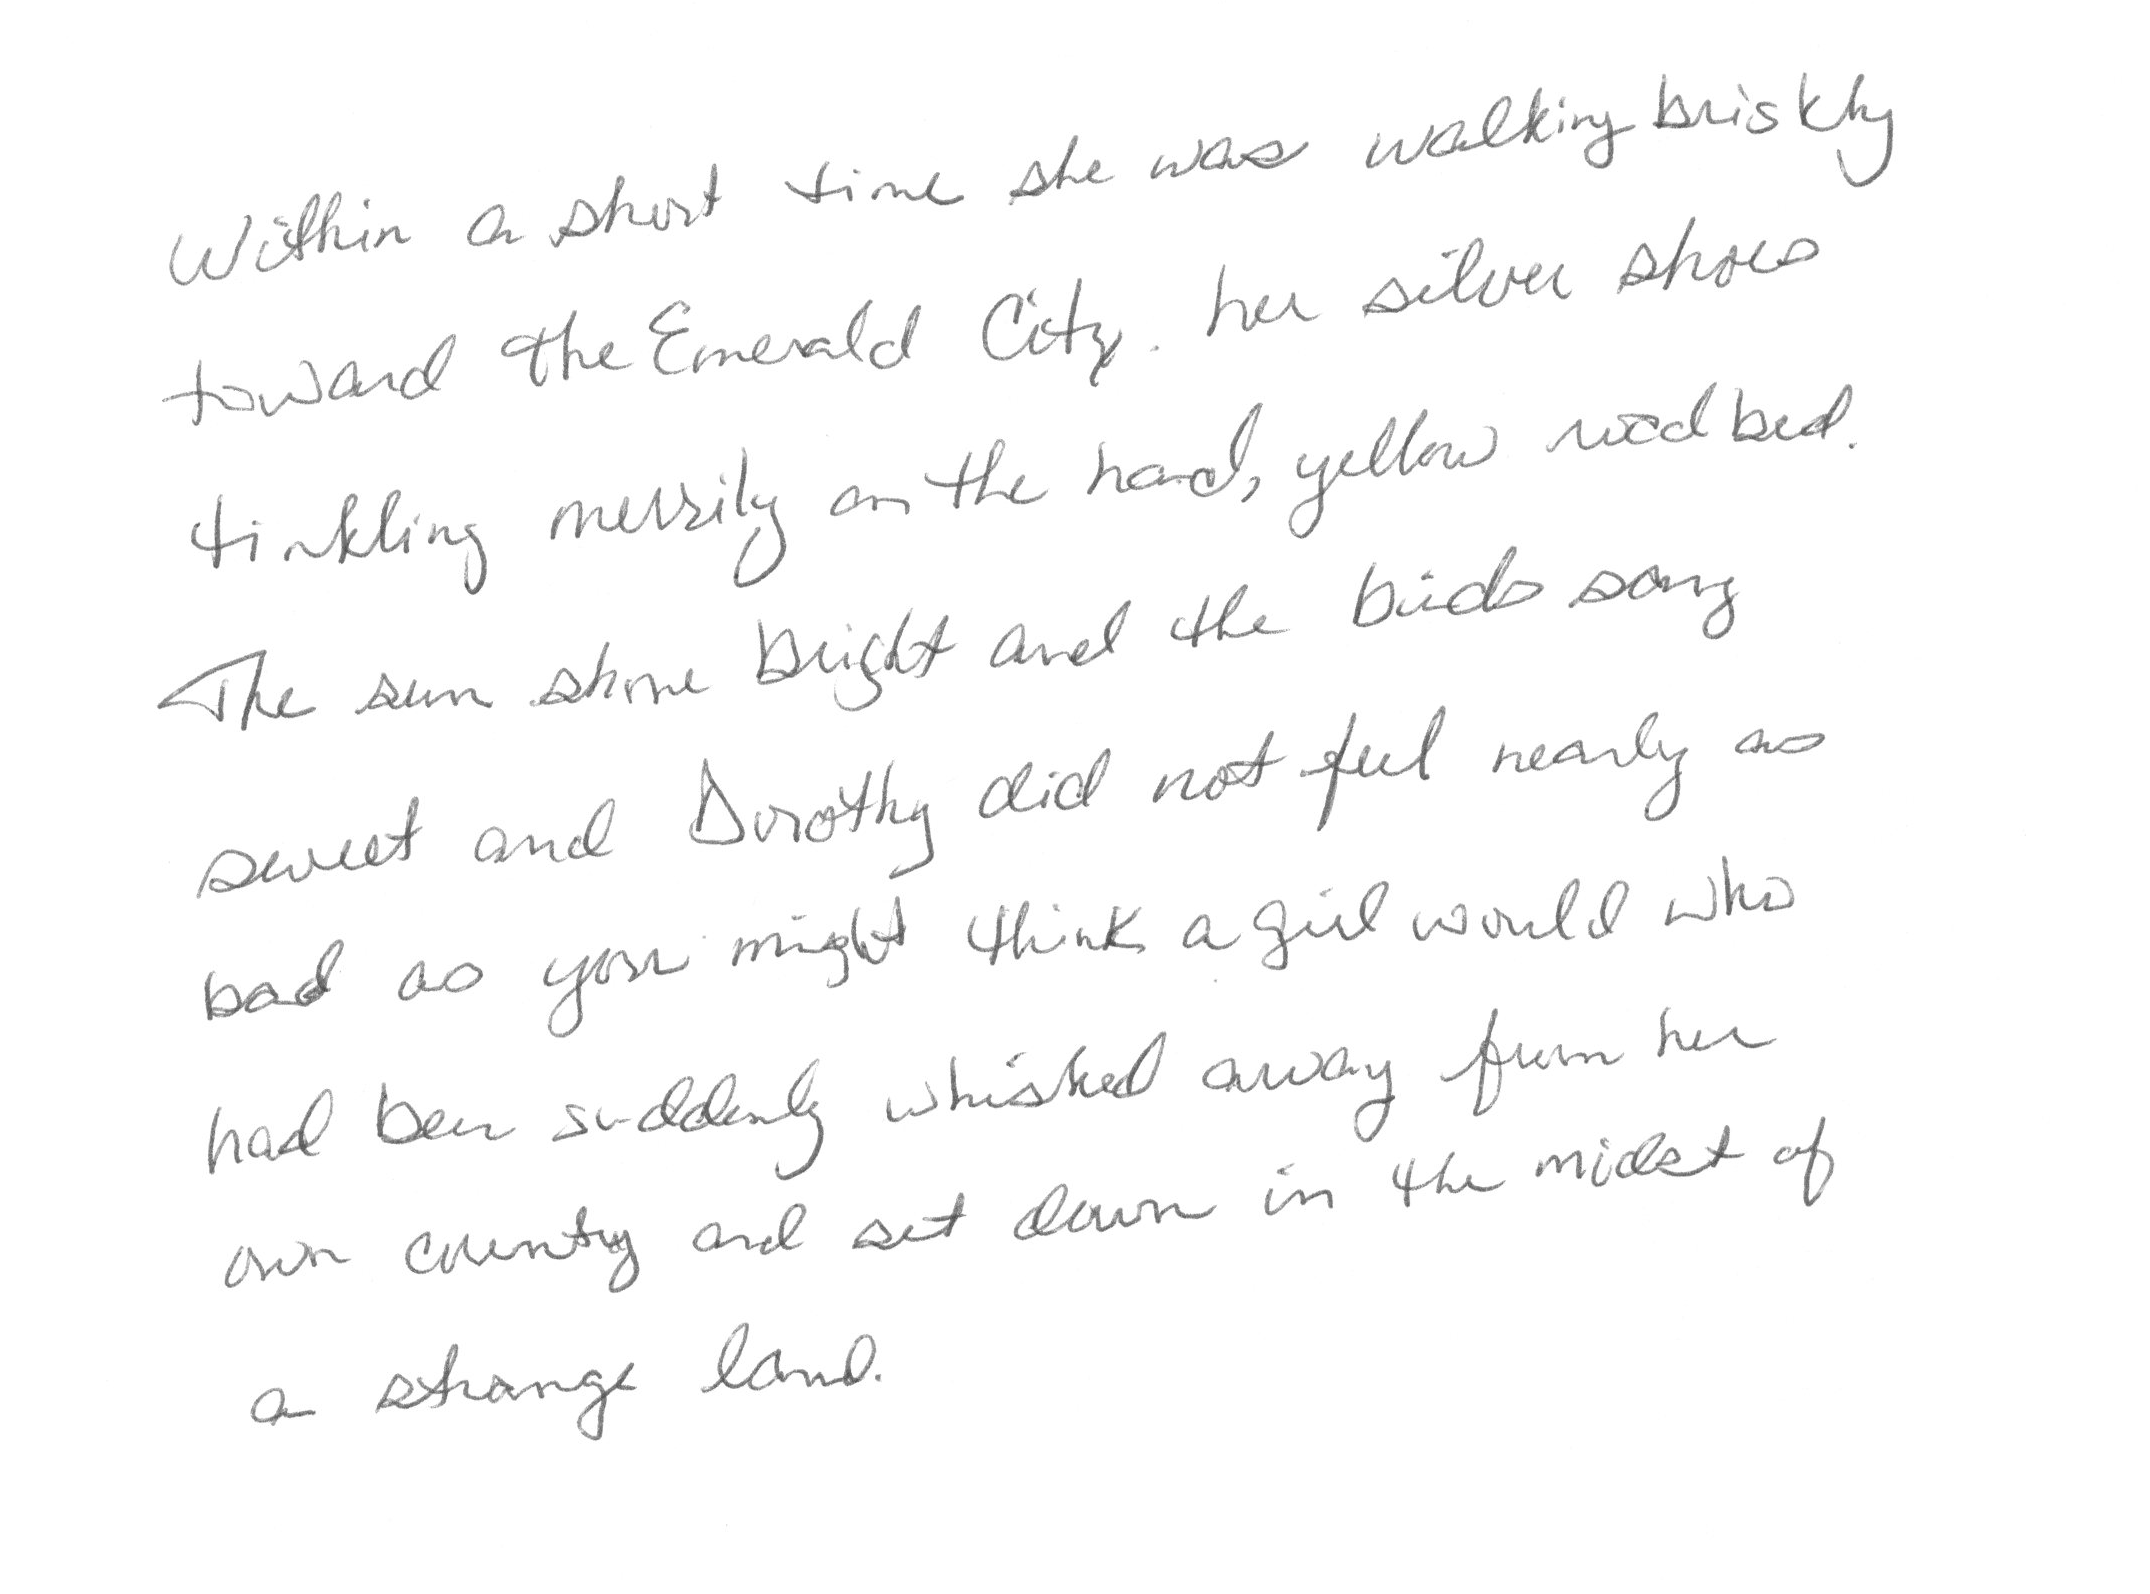 Within a short time she was walking briskly
toward the Emerald City. her silver shoes
tinkling merrily on the hard, yellow road bed.
The sun shone bright and the birds sang
sweet and Dorothy did not feel nearly as
bad as you might think a girl would who
had been suddenly whisked away from her
own country and set down in the midst of
a strange land.